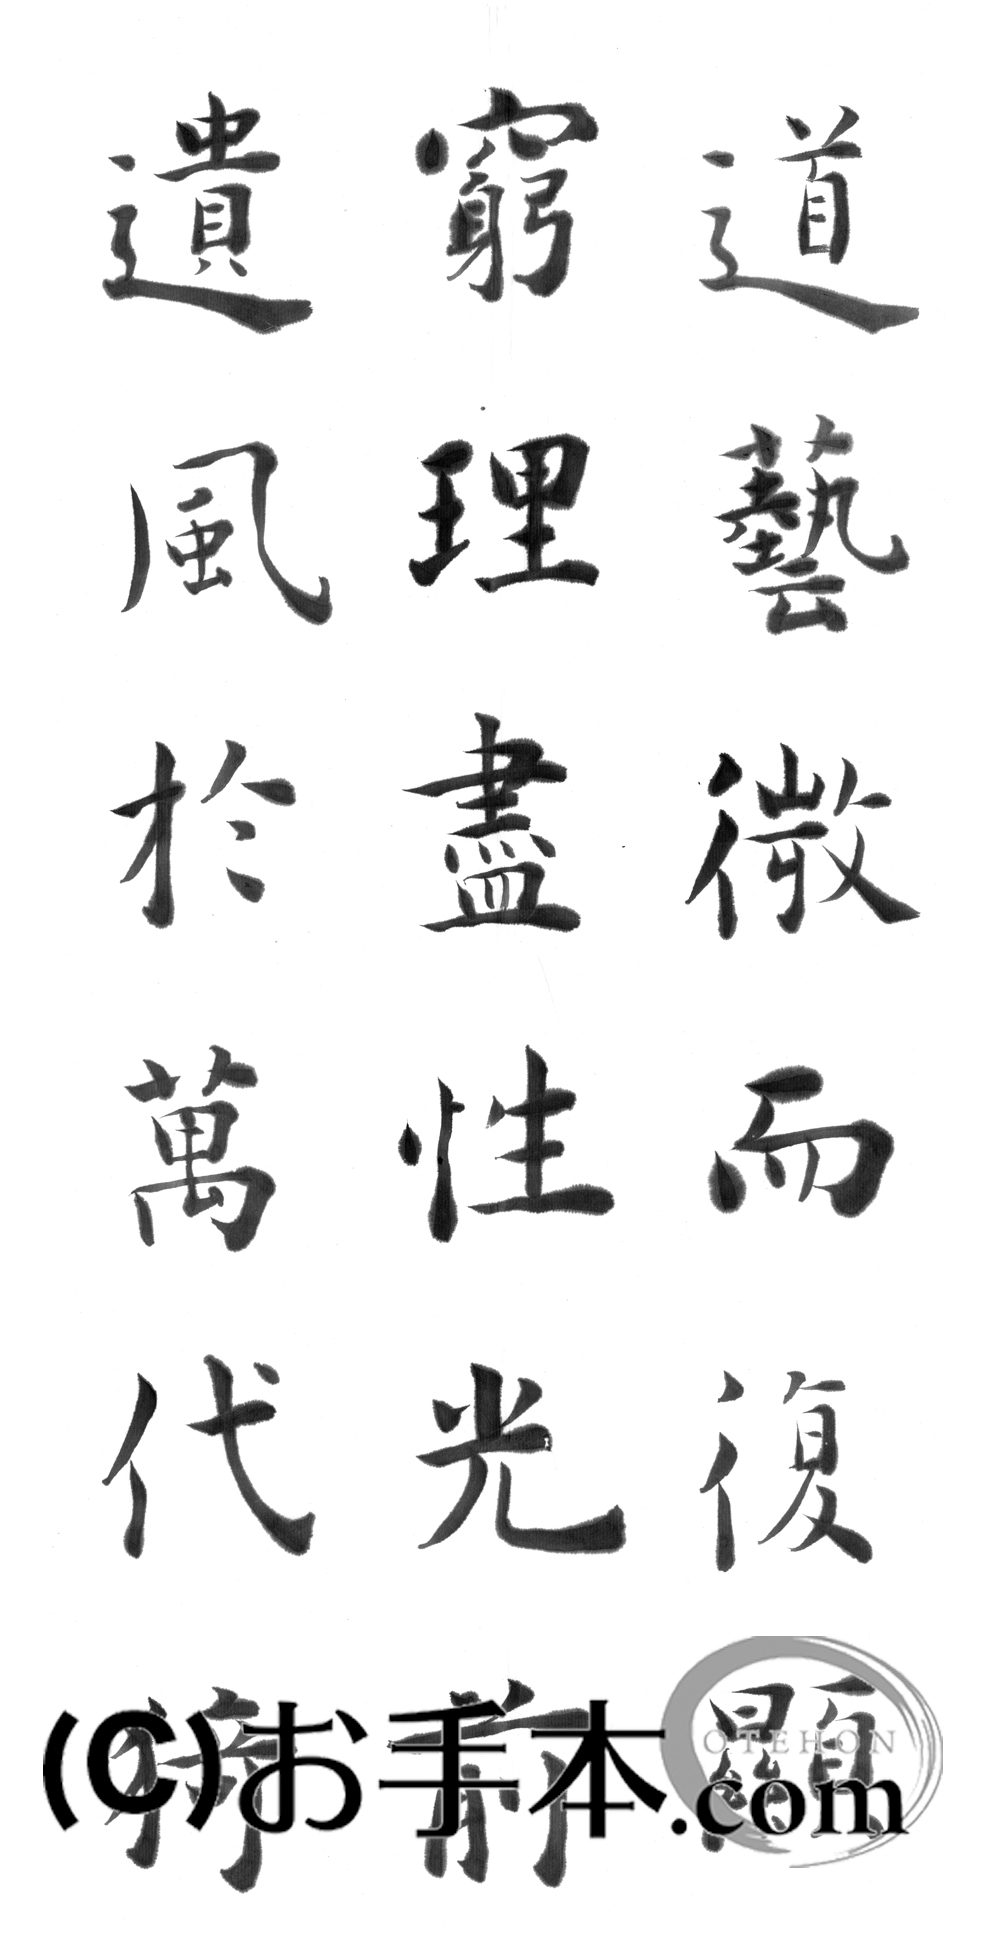 道藝微而復顯
窮理盡性光前
遺風於萬代
(C)お手本.com
OTEHON